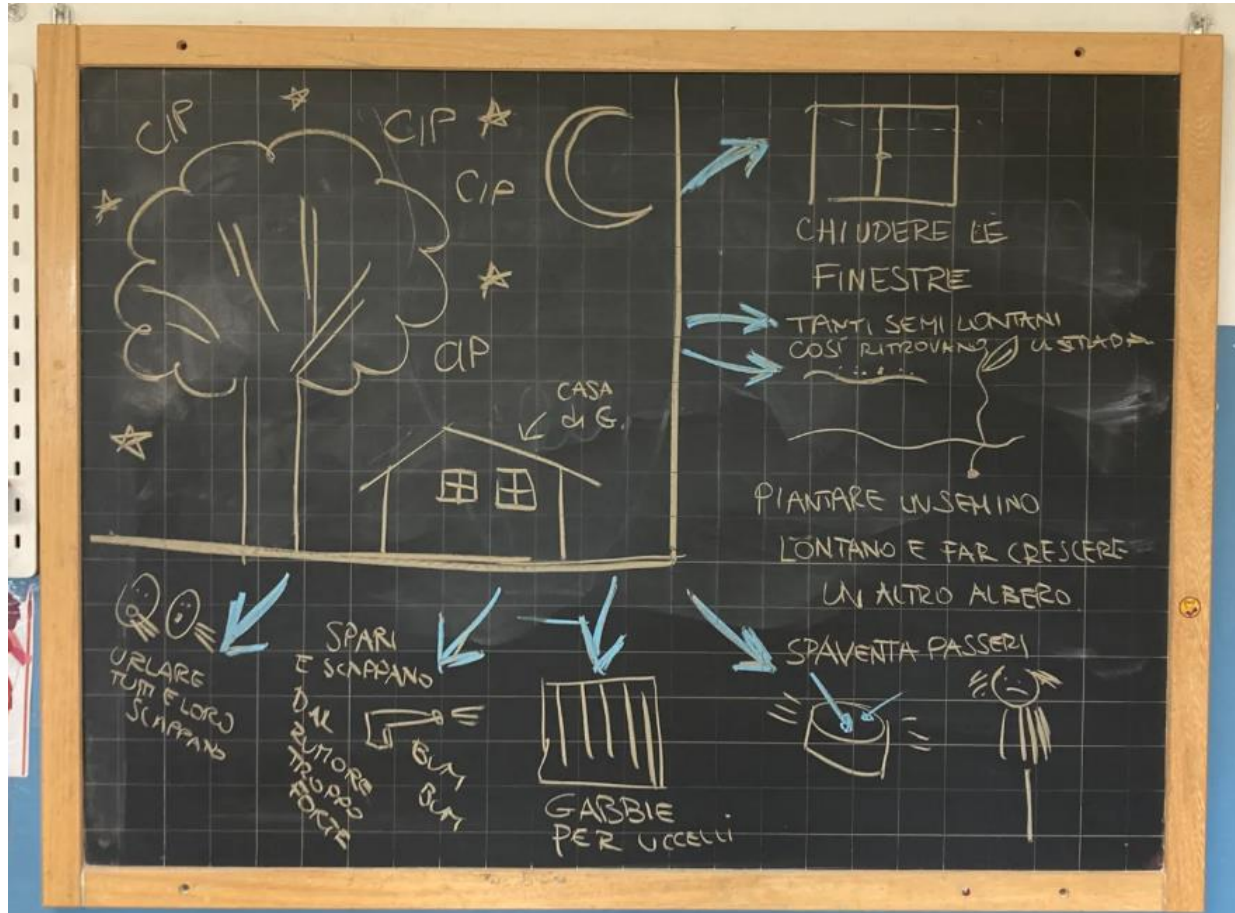 CIP
CIP
CIP
CIP
CASA
di G.
CHIUDERE LE
FINESTRE
TANTI SEMI LONTANI
COSÌ RITROVANO LA STRADA
PIANTARE UN SEMINO
LONTANO E FAR CRESCERE
UN ALTRO ALBERO
URLARE
TUTTI E LORO
SCAPPANO
SPARI
E SCAPPANO
DAL
RUMORE
TROPPO
FORTE
BUM
BUM
GABBIE
PER UCCELLI
SPAVENTA PASSERI